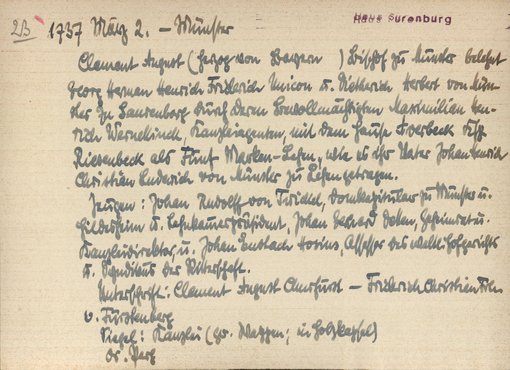 2B 1737 März 2. – Münster Haus Surenburg
Clement August (Herzog von Bayern ) Bischof zu Münster belehnt
Georg Herman Henrich Friderich Unicon u. Diderich Herbert von Mün-
ster zu Surenberg durch deren Bevollmächtigten Maximilian Hen-
rich Wernekinck, Kanzleiagenten, mit dem Hause Overbeck Ksp.
Riesenbeck als Fünf Marken-Lehen, wie es ihr Vater Johan Henrich
Christian Luderich von Münster zu Lehen getragen.
Zeugen: Johan Rudolff von Twickel, Domkapitular zu Münster u.
Hildesheim u. Lehnkammerpräsident, Johan Gerhard Geheimrat u.
Kanzleidirektor, u. Johan Eustach Hosius, Assessor des weltl. Hofgerichts
u. Syndikus der Ritterschaft.
Unterschrift: Clement August Churfürst – Friderich Christian Frh
v. Fürstenberg
Siegel: Kanzlei (gr. Wappen; in Holzkapsel)
Or. Perg